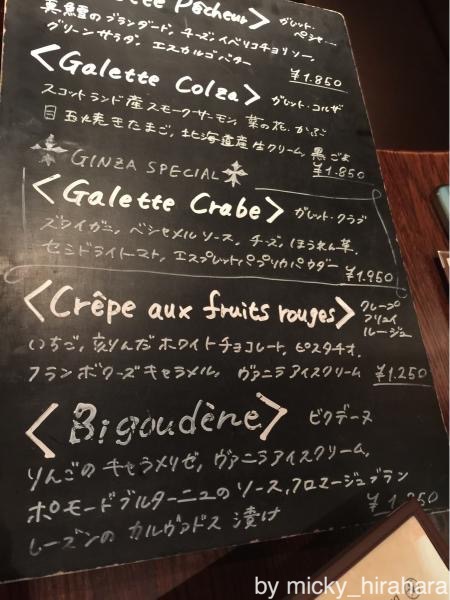 ette Pêcheur> ガレット・
ペシャー
真鱈のブランダード, チーズ, イベリコチョリソー,
グリーンサラダ, エスカルゴバター
¥1.850
<Galette Colza> ガレット・コルザ
スコットランド産スモークサーモン, 菜の花, かぶ
目玉焼きたまご, 北海道産生クリーム, 黒ごま
¥1.850
GINZA SPECIAL
<Galette Crabe> ガレット・クラブ
ズワイガニ, ベシャメルソース, チーズ, ほうれん草,
セミドライトマト, エスプレットパプリカパウダー ¥1.950
<Crêpe aux fruits rouges> クレープ
フリュイ
ルージュ
いちご, 刻んだホワイトチョコレート, ピスタチオ,
フランボワーズキャラメル, ヴァニラアイスクリーム ¥1.250
<Bigoudène> ビグデーヌ
りんごのキャラメリゼ, ヴァニラアイスクリーム,
ポモードブルターニュのソース, フロマージュブラン
レーズンのカルヴァドス漬け
by micky_hirahara